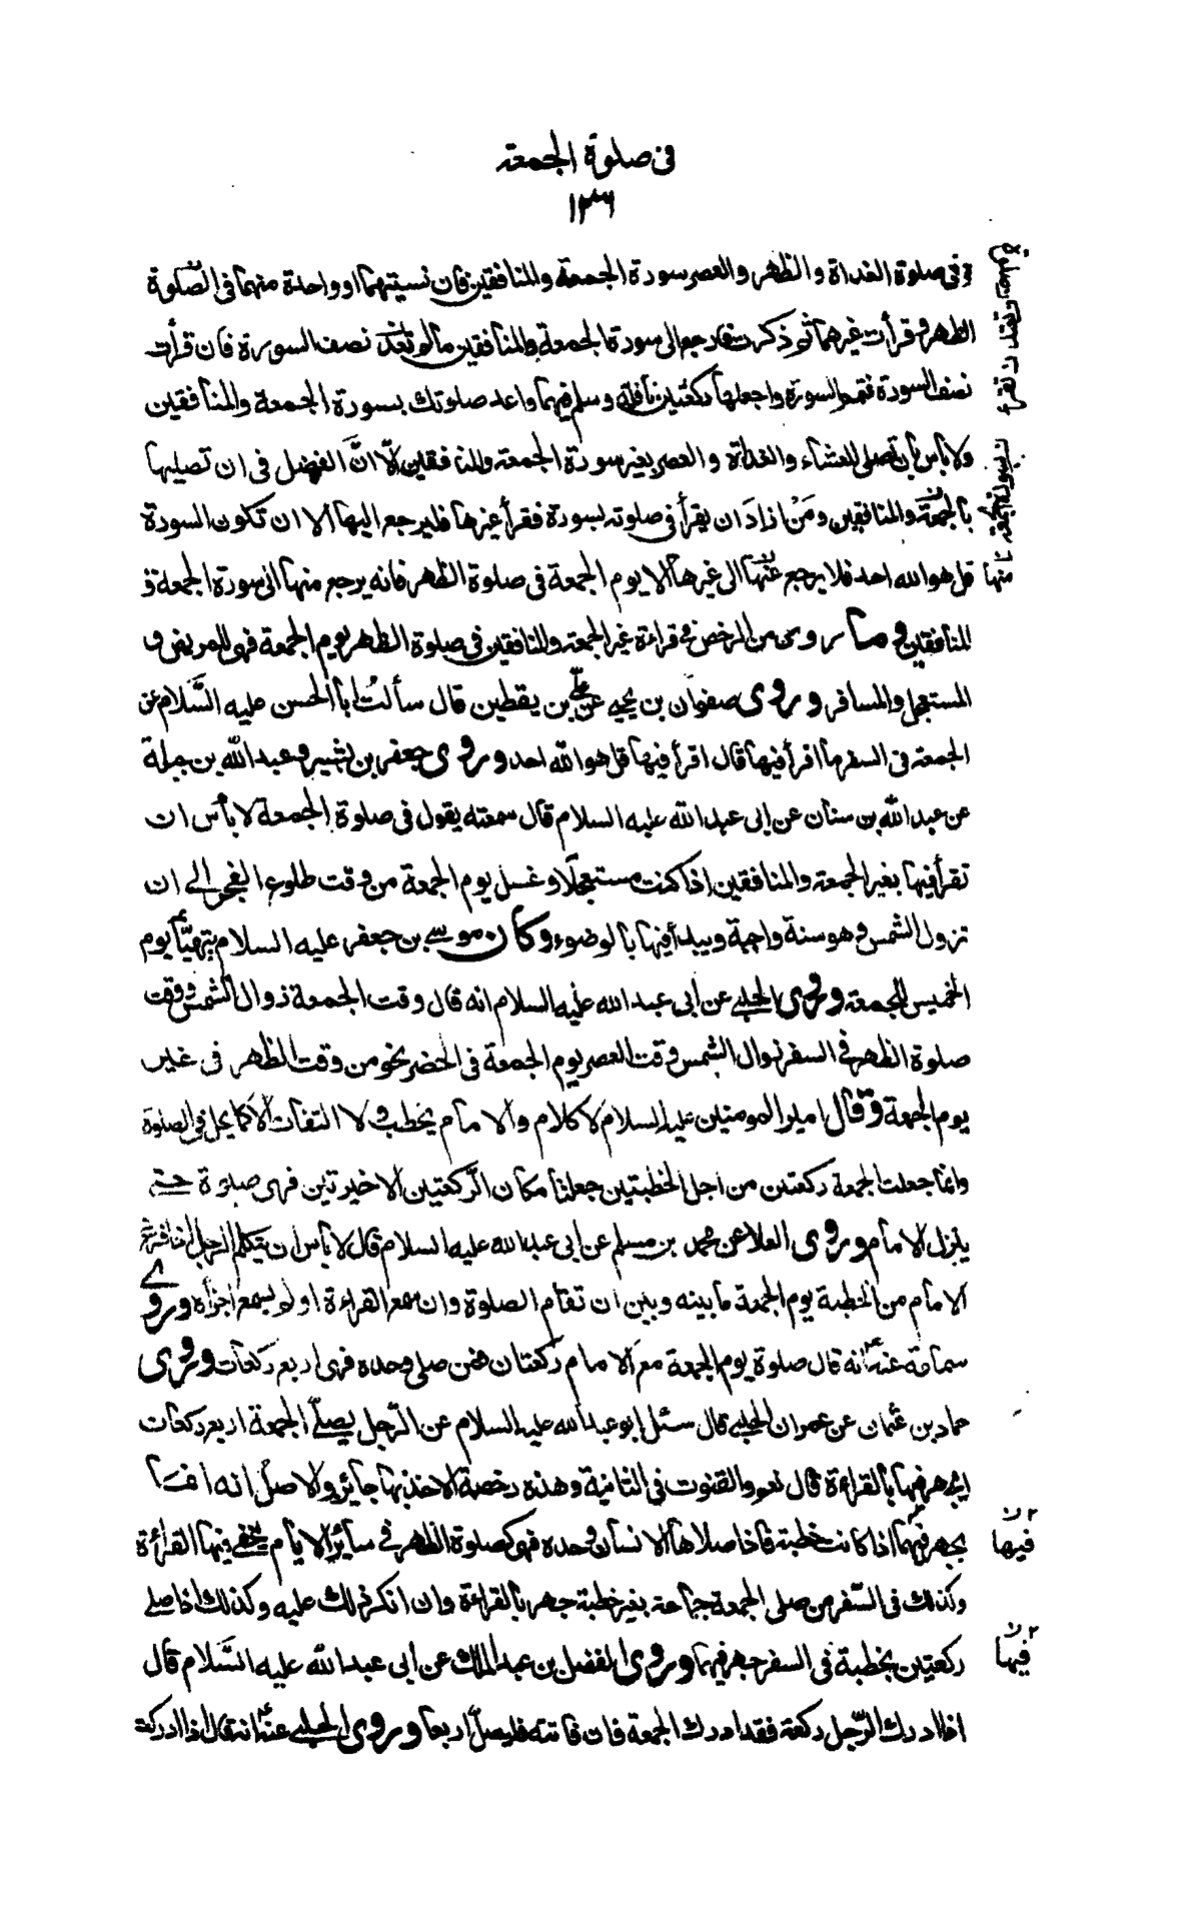 في صلوة الجمعة
١٣٦
وفي صلوة الغداة والظهر والعصر سورة الجمعة والمنافقين فان نسيتهما او واحدة منهما في الصلوة
الظهر وقرأت غيرهما ثم ذكرت فارجع الى سورة الجمعة والمنافقين ما لم تعد نصف السورة فان قرأت
نصف السورة فتمم السورة واجعلها ركعتين نافلة وسلم فيهما واعد صلوتك بسورة الجمعة والمنافقين
ولا بأس بان تصلي العشاء والغداة والعصر بغير سورة الجمعة والمنافقين الّا انّ الفضل في ان تصليها
بالجمعة والمنافقين ومَنْ ازاد ان يقرأ في صلوته بسورة فقرأ غيرها فليرجع اليها الا ان تكون السورة
قل هو الله احد فلا يرجع عنها الى غيرها الا يوم الجمعة في صلوة الظهر فانه يرجع منها الى سورة الجمعة و
المنافقين وما روى من الرخص في قراءة غير الجمعة والمنافقين في صلوة الظهر يوم الجمعة فهي للمريض و
المستعجل والمسافر وروى صفوان بن يحيى عن علي بن يقطين قال سألتُ ابا الحسن عليه السَّلام عن
الجمعة في السفر ما اقرأ فيها قال اقرأ فيها قل هو الله احد وروى جعفر بن بشير وعبد الله بن جبلة
عن عبد الله بن سنان عن ابي عبد الله عليه السلام قال سمعته يقول في صلوة الجمعة لا بأس ان
تقرأ فيها بغير الجمعة والمنافقين اذا كنت مستعجلًا وغسل يوم الجمعة من وقت طلوع الفجر الى ان
تزول الشمس وهو سنة واجبة ويبدأ فيها بالوضوء وكان موسى بن جعفر عليه السلام يتهيّأ يوم
الخميس للجمعة وروى الحلبي عن ابي عبد الله عليه السلام انه قال وقت الجمعة زوال الشمس ووقت
صلوة الظهر في السفر زوال الشمس وقت العصر يوم الجمعة في الحضر نحو من وقت الظهر في غير
يوم الجمعة وقال امير المومنين عليه السلام لا كلام والامام يخطب ولا التفات الا كما يحل في الصلوة
وانما جعلت الجمعة ركعتين من اجل الخطبتين جعلتا مكان الرَّكعتين الاخيرتين فهي صلوة حتى
ينزل الامام وروى العلا عن محمد بن مسلم عن ابي عبد الله عليه السلام قال لا بأس ان يتكلم الرجل اذا فرغ
الامام من الخطبة يوم الجمعة ما بينه وبين ان تقام الصلوة وان سمع القراءة او لم يسمع اجزأه وروى
سماعة عنه انه قال صلوة يوم الجمعة مع الامام ركعتان فمن صلى وحده فهي اربع ركعات وروى
حماد بن عثمان عن عمران الحلبي قال سئل ابو عبد الله عليه السلام عن الرَّجل يصلّي الجمعة اربع ركعات
ايجهر فيها بالقراءة قال نعم والقنوت في الثانية وهذه رخصة الاخذ بها جايز والاصل انه انما
يجهر فيها اذا كانت خطبة فاذا صلاها الانسان وحده فهي كصلوة الظهر في سائر الايام يخفي فيها القراءة
فيها
وكذلك في السّفر من صلى الجمعة جماعة بغير خطبة جهر بالقراءة وان انكر ذلك عليه وكذلك اذا صلى
ركعتين بخطبة في السفر جهر فيها وروى الفضل بن عبد الملك عن ابي عبد الله عليه السَّلام قال
فيها
اذا ادرك الرّجل ركعة فقد ادرك الجمعة فان فاتته فليصل اربعا وروى الحلبي عنه انه قال اذا ادركت